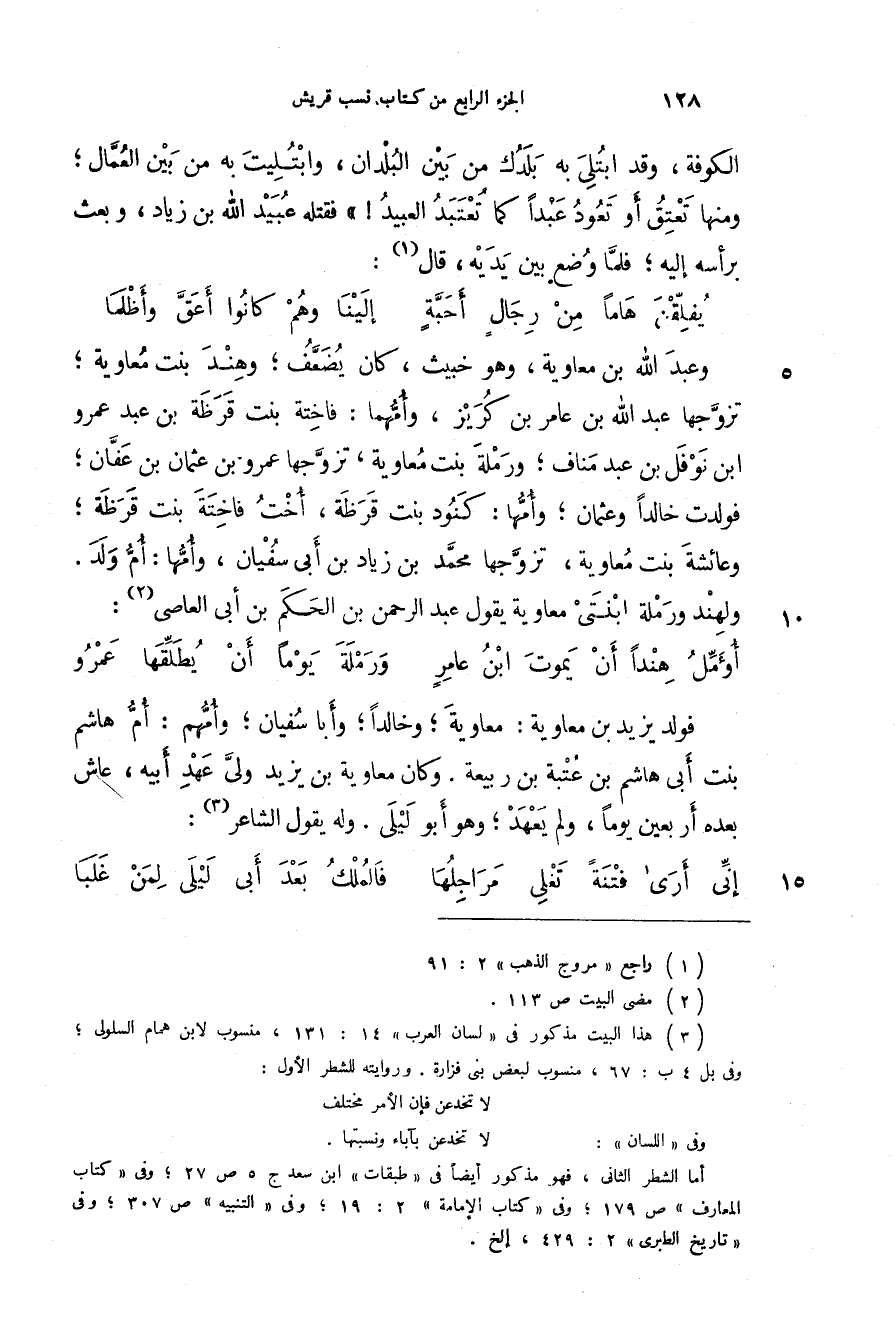 ١٢٨ الجزء الرابع من كتاب نسب قريش
الكوفة ، وقد ابتُلِىَ به بَلَدُك من بَيْن البُلْدان ، وابْتُلِيتَ به من بَيْن العُمَّال ؛
ومنها تَعْتِقُ أو تَعُودُ عَبْداً كما تُعْتَبَدُ العبيدُ ! » فقتله عبُيَدْ الله بن زياد ، وبعث
برأسه إليه ؛ فلمَّا وُضع بين يَدَيْه ، قال(١) :
يُفلِّقْنَ هَاماً مِنْ رِجَالٍ أَحَبَّةٍ إِلَيْنَا وهُمْ كَانُوا أَعَقَّ وأَظْلَمَا
٥ وعبدَ الله بن معاوية ، وهو خبيث ، كان يُضَعَّفُ ؛ وهِنْدَ بنت مُعاوية ؛
تزوَّجها عبد الله بن عامر بن كُرَيْز ، وأُمُّهما : فاخِتة بنت قَرَظَة بن عبد عمرو
ابن نَوْفَل بن عبد مَناف ؛ ورَمْلةَ بنت مُعاوية ، تزوَّجها عمرو بن عثمان بن عَفَّان ؛
فولدت خالداً وعثمان ؛ وأُمُّها : كَنُود بنت قَرَظَة ، أُخْتُ فاخِتَةَ بنت قَرَظَة ؛
وعائشةَ بنت مُعاوية ، تزوَّجها محمَّد بن زياد بن أبى سفْيان ، وأُمُّها : أُمُّ وَلَدَ .
١٠ ولهِنْد ورَمْلة ابْنَتَىْ معاوية يقول عبد الرحمن بن الحَكَم بن أبى العاصى(٢) :
أُوَمِّلُ هِنْداً أَنْ يَموتَ ابْنُ عامِرٍ وَرَمْلَةَ يَوْماً أَنْ يُطَلِّقَها عَمْرُو
فولد يزيد بن معاوية : معاويةَ ؛ وخالداً ؛ وأَبا سُفيان ؛ وأُمُّهم : أُمُّ هاشم
بنت أبى هاشم بن عُتْبة بن ربيعة . وكان معاوية بن يزيد ولىَّ عَهْدِ أبيه ، عاش
بعده أربعين يوماً ، ولم يَعْهَدْ ؛ وهو أبو لَيْلَى . وله يقول الشاعر(٣) :
١٥ إِنِّى أَرَى فتْنَةً تَغْلِى مَرَاجِلُهَا فَالمُلْكُ بَعْدَ أَبى لَيْلَى لِمَنْ غَلَبَا
( ١ ) راجع « مروج الذهب » ٢ : ٩١
( ٢ ) مضى البيت ص ١١٣ .
( ٣ ) هذا البيت مذكور فى « لسان العرب » ١٤ : ١٣١ ، منسوب لابن همام السلولى ؛
وفى بل ٤ ب : ٦٧ ، منسوب لبعض بنى فزارة . وروايته للشطر الأول :
لا تخدعن فإن الأمر مختلف
وفى « اللسان » : لا تخدعن بآباء ونسبتها .
أما الشطر الثانى ، فهو مذكور أيضاً فى « طبقات » ابن سعد ج ٥ ص ٢٧ ؛ وفى « كتاب
المعارف » ص ١٧٩ ؛ وفى « كتاب الإمامة » ٢ : ١٩ ؛ وفى « التنبيه » ص ٣٠٧ ؛ وفى
« تاريخ الطبرى » ٢ : ٤٢٩ ، إلخ .